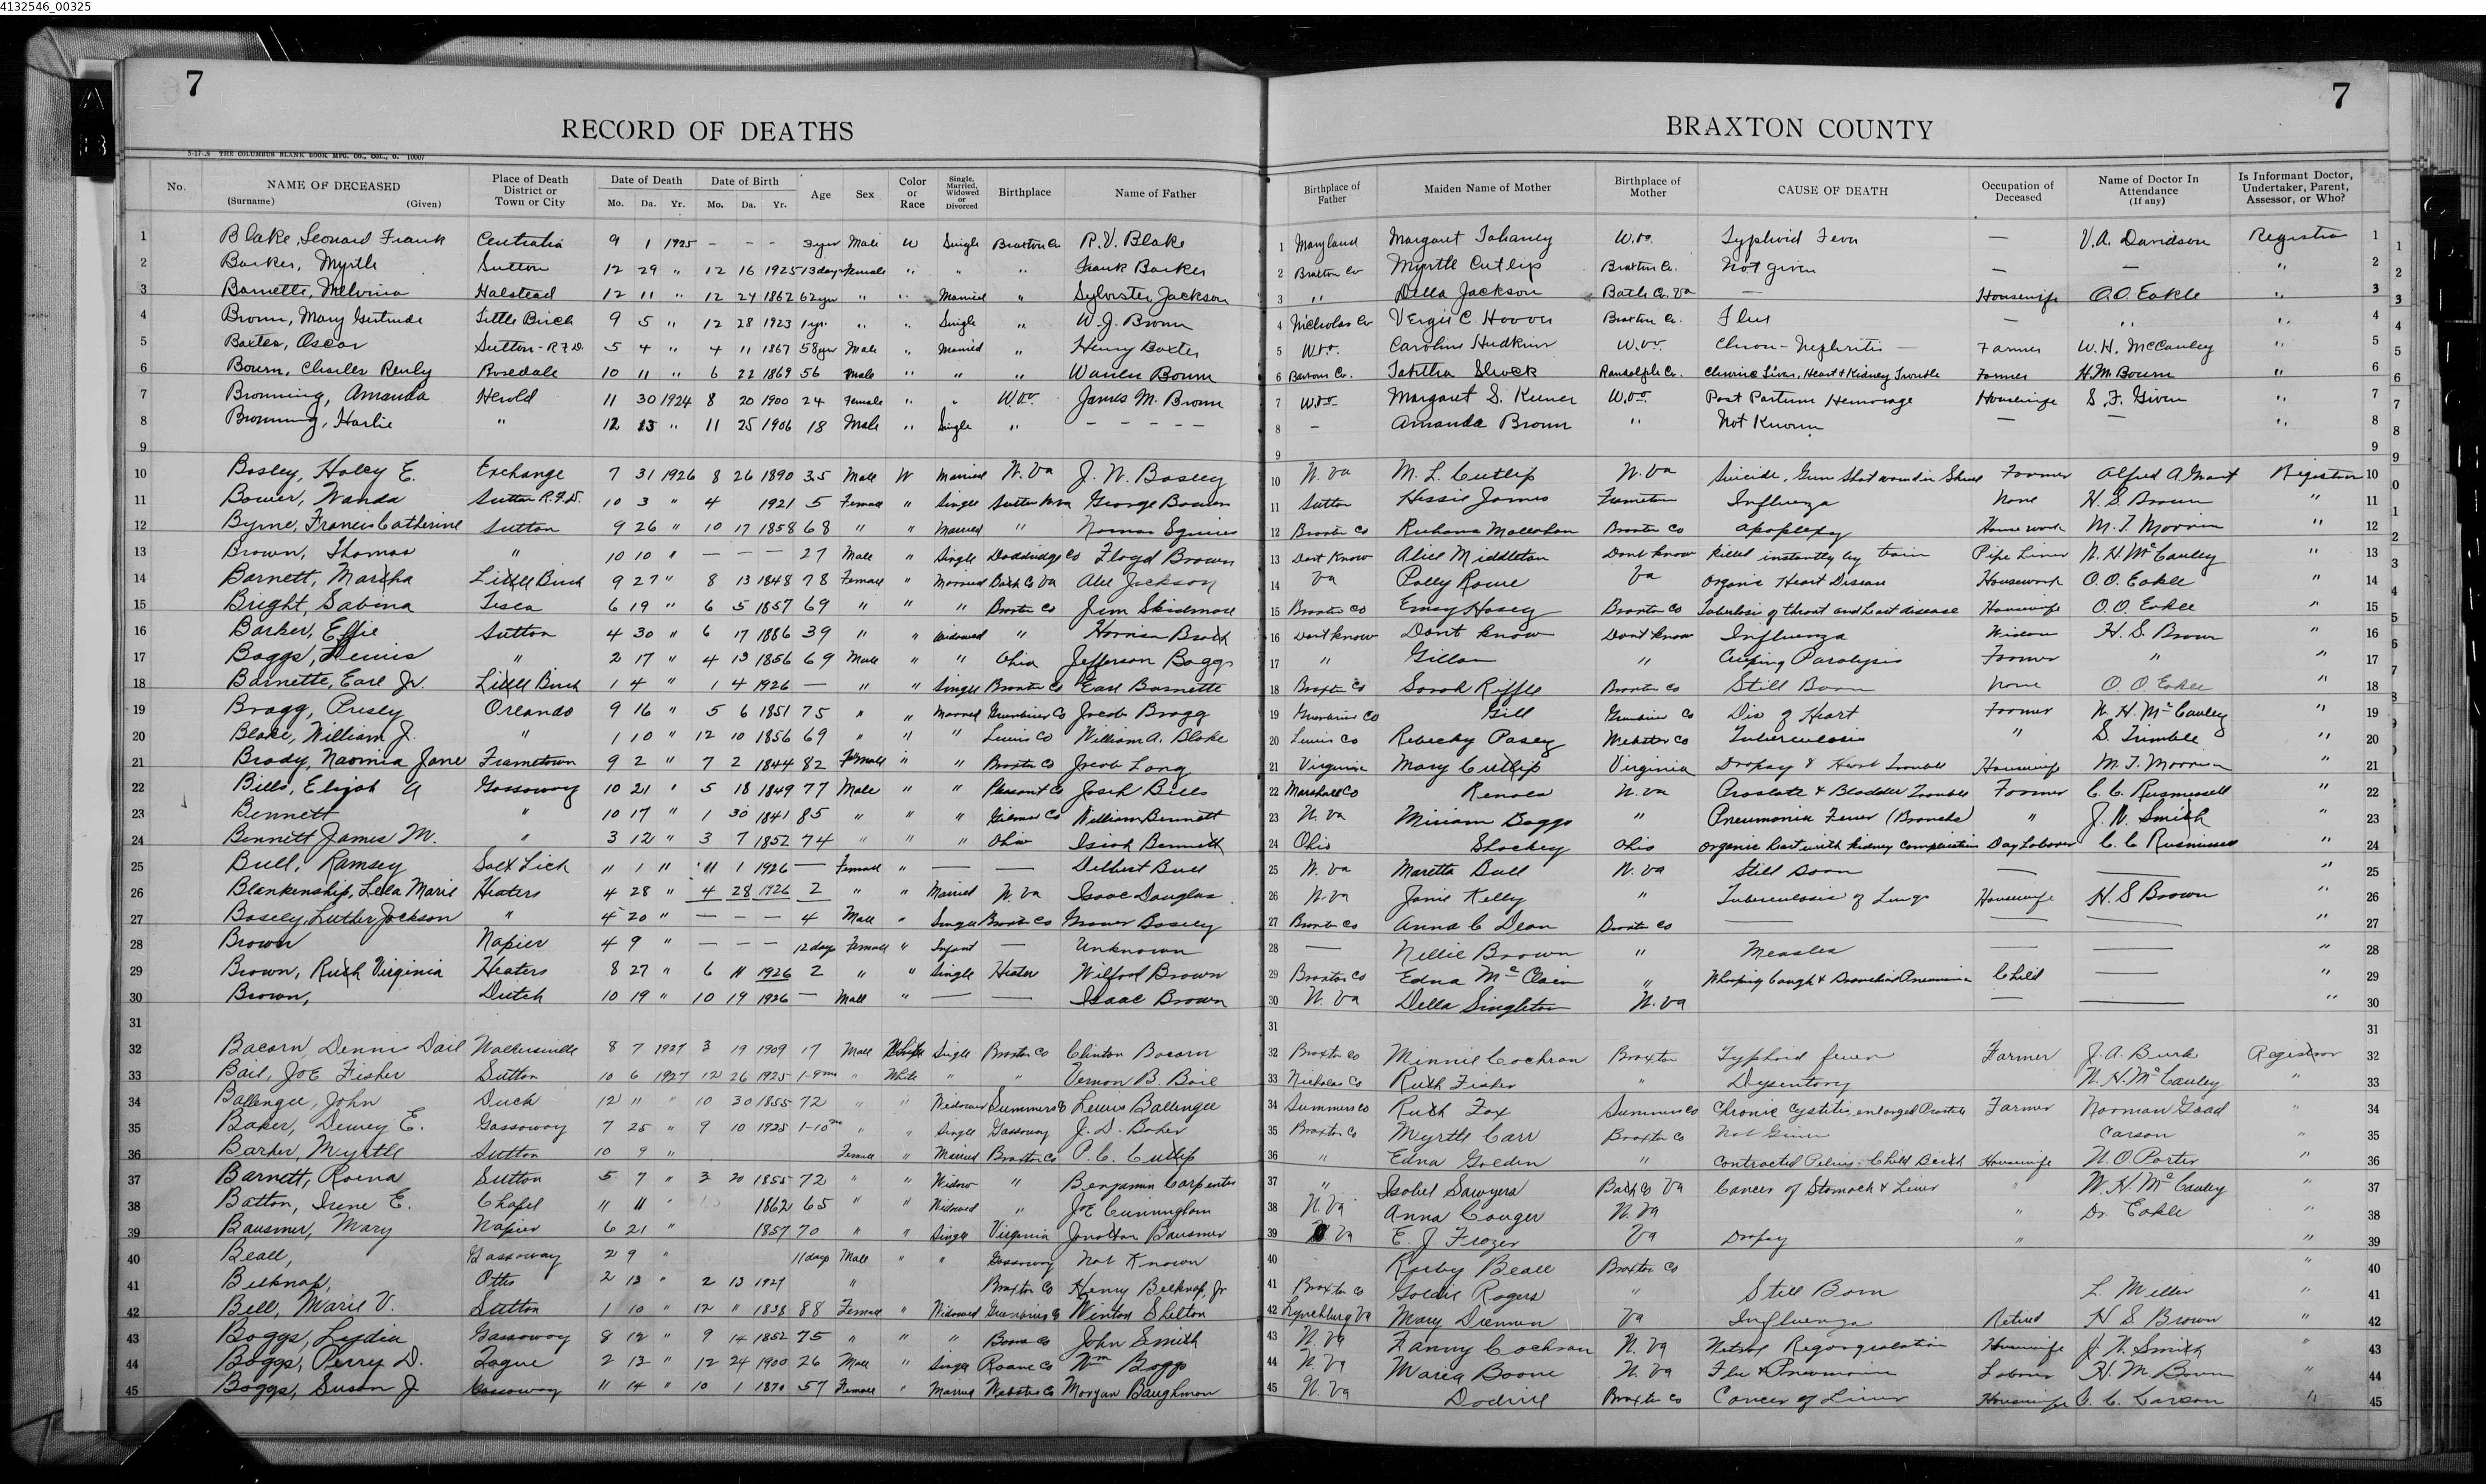 4132546_00325
7
7
RECORD OF DEATHS
BRAXTON COUNTY
5-17-S THE COLUMBUS BLANK BOOK MFG. CO., COL., O. 10007
No. NAME OF DECEASED (Surname) (Given) Place of Death District or Town or City Date of Death Mo. Da. Yr. Date of Birth Mo. Da. Yr. Age Sex Color or Race Single, Married, Widowed or Divorced Birthplace Name of Father Birthplace of Father Maiden Name of Mother Birthplace of Mother CAUSE OF DEATH Occupation of Deceased Name of Doctor In Attendance (If any) Is Informant Doctor, Undertaker, Parent, Assessor, or Who?
1 Blake, Leonard Frank Centralia 9 1 1925 - - - 3yrs Male W Single Braxton Co R.V. Blake 1 Maryland Margaret W.Va. Typhoid Fever — V.A. Davidson Registrar 1
2 Barker, Myrtle Sutton 12 29 " 12 16 1925 13days Female " " " Frank Barker 2 Braxton Co Myrtle Cutlip Braxton Co. Not given — — " 2
3 Barnette, Melvina Halstead 12 11 " 12 24 1862 62yrs " " Married " Sylvester Jackson 3 " Della Jackson Bath Co. Va — Housewife O.O. Eakle " 3
4 Brown, Mary Gertrude Little Birch 9 5 " 12 28 1923 1yr. " " Single " W.J. Brown 4 Nicholas Co Vergie C. Hoover Braxton Co. Flu — " " 4
5 Baxter, Oscar Sutton-R.F.D. 5 4 " 4 11 1867 58yrs Male " Married " Henry Baxter 5 W.Va. Caroline Hudkins W.Va. Chron-Nephritis — Farmer W.H. McCauley " 5
6 Bourn, Charles Rosedale 10 11 " 6 22 1869 56 Male " " " Warren Bourn 6 Barbour Co. Tabitha Shock Randolph Co. Chronic Liver, Heart & Kidney Trouble Farmer H.M Bourn " 6
7 Browning, Amanda Herold 11 30 1924 8 20 1900 24 Female " " W.Va. James M. Brown 7 W.Va. Margaret S. Keener W.Va. Post Partum Hemorage Housewife S.F. Given " 7
8 Browning, Harlie " 12 13 " 11 25 1906 18 Male " Single " - - - - - 8 - Amanda Brown " Not Known — — " 8
9 9 9
10 Bosley, Haley E. Exchange 7 31 1926 8 26 1890 35 Male W Married W. Va J. W. Bosley 10 W. Va M. L. Cutlip W. Va Suicide, Gun Shot wound in Farmer Alfred A Grant Registrar 10
11 Bower, Wanda Sutton R.F.D. 10 3 " 4 1921 5 Female " Single Sutton W Va George 11 Sutton Hessie James Frametown Influenza None H. S. Brown " 11
12 Byrne, Francis Catherine Sutton 9 26 " 10 17 1858 68 " " Married " Norman Squires 12 Braxton Co Ruhama Mollohan Braxton Co apoplexy House work M. T. Morrison " 12
13 Brown, Thomas " 10 10 " — — — 27 Male " Single Doddridge Co Floyd Brown 13 Dont Know Alice Middleton Dont know Killed instantly by train Pipe Liner W. H. McCauley " 13
14 Barnett, Martha Little Birch 9 27 " 8 13 1848 78 Female " Married Bath Co Va Abe Jackson 14 Va Polly Rowe Va Organic Heart Disease Housework O. O. Eakle " 14
15 Bright, Sabina Tesla 6 19 " 6 5 1857 69 " " " Braxton Co Jim Skidmore 15 Braxton Co Hosey Braxton Co of throat and heart disease Housewife O.O. Eakle " 15
16 Barker, Effie Sutton 4 30 " 6 17 1886 39 " " Widowed " 16 Dont know Dont know Dont know Influenza Widow H. S. Brown " 16
17 Boggs, Lewis " 2 17 " 4 13 1856 69 Male " " Ohio Jefferson Boggs 17 " " Creeping Paralysis Farmer " " 17
18 Barnette, Earl Jr. Little Birch 1 4 " 1 4 1926 — " " Single Braxton Co Earl Barnette 18 Braxton Co Sarah Riffle Braxton Co Still Born None O. O. Eakle " 18
19 Bragg, Presly Orlando 9 16 " 5 6 1851 75 " " Married Greenbrier Co Jacob Bragg 19 Greenbrier Co Gill Greenbrier Co Dis of Heart Farmer W. H. McCauley " 19
20 Blake, William J. " 1 10 " 12 10 1856 69 " " " Lewis Co William A. Blake 20 Lewis Co Rebecky Posey Webster Co Tuberculosis " D. Trimble " 20
21 Brady, Naomia Jane Frametown 9 2 " 7 2 1844 82 Female " " Braxton Co Jacob Long 21 Virginia Mary Cutlip Virginia Dropsy & Heart Trouble Housewife M. T. Morrison " 21
22 Bills, Elijah A Gassaway 10 21 " 5 18 1849 77 Male " " Pleasant Co Bills 22 Marshall Co W. Va Prostate & Bladder Trouble Farmer C. C. Rusmussell " 22
23 Bennett " 10 17 " 1 30 1841 85 " " " Gilmer Co William Bennett 23 W. Va Miriam Boggs " Pneumonia Fever (Broncho) " J. W. Smith " 23
24 Bennett James M. " 3 12 " 3 7 1852 74 " " " Ohio Bennett 24 Ohio Shockey Ohio organic heart with kidney complication Day Laborer C. C " 24
25 Bull, Ramsey Salt Lick 11 1 " 11 1 1926 — Female " — — Delbert Bull 25 W. Va Maretta Bull W. Va Still Born — — " 25
26 Blankenship, Lella Marie Heaters 4 28 " 4 28 1926 2 " " Married W. Va Isaac Douglas 26 W. Va Janie Kelly " Tuberculosis of Lungs Housewife H. S Brown " 26
27 Bosely, Luther Jackson " 4 20 " — — — 4 Male " Single Braxton Co Grover Bosely 27 Braxton Co Anna C Dean Braxton Co — — — " 27
28 Brown Napier 4 9 " — — — 12 days Female " Infant — Unknown 28 — Nellie Brown " Measles — — " 28
29 Brown, Ruth Virginia Heaters 8 27 " 6 11 1926 2 " " Single Heater Wilford Brown 29 Braxton Co Edna McClain " Whooping Cough & Bronchial Pneumonia Child — " 29
30 Brown, Dutch 10 19 " 10 19 1926 — Male " — — Isaac Brown 30 W. Va Della Singleton W. Va — — " 30
31 31 31
32 Bacorn, Dennis Dail Walkersville 8 7 1927 3 19 1909 17 Male White Single Braxton Co Clinton Bacorn 32 Braxton Co Minnie Cochran Braxton Typhoid fever Farmer J. A. Burk Registrar 32
33 Bail, Joe Fisher Sutton 10 6 1927 12 26 1925 1-9mo " White " " Vernon B. Bail 33 Nicholas Co Ruth Fisher " Dysentory W. H. McCauley " 33
34 Ballengee, John Duck 12 11 " 10 30 1855 72 " " Widower Summers Co Lewis Ballengee 34 Summers Co Ruth Fox Summers Co Chronic Cystitis, enlarged Prostate Farmer Norman Goad " 34
35 Baker, Dewey E. Gassaway 7 25 " 9 10 1925 1-10mo " " Single Gassaway J. D. Baker 35 Braxton Co Myrtle Carr Braxton Co Not Given Carson " 35
36 Barker, Myrtle Sutton 10 9 " Female " Married Braxton Co P. C. Cutlip 36 " Edna Golden " Contracted Pelvis - Child Birth Housewife W. O. Porter " 36
37 Barnett, Roena Sutton 5 7 " 3 20 1855 72 " " Widow " Benjamin Carpenter 37 " Isobel Sawyers Bath Co Va Cancer of Stomach & Liver " W. H McCauley " 37
38 Batton, Irene E. Chapel 11 11 " 1862 65 " " Widowed " Joe Cunningham 38 W. Va Anna Conger W. Va " Dr. Eakle " 38
39 Bausmer, Mary Napier 6 21 " 1857 70 " " Single Virginia Bausmer 39 Va E. J Frozer Va Dropsy " " 39
40 Beall, Gassaway 2 9 " 11 days Male " " Gassaway Not Known 40 Ruby Beall Braxton Co " 40
41 Belknap, Otto 2 13 " 2 13 1927 " Braxton Co Henry Belknap, Jr 41 Braxton Co Goldie Rogers " Still Born L. Miller " 41
42 Bell, Marie V. Sutton 1 10 " 12 11 1838 88 Female " Widowed Greenbrier Co Winton Shelton 42 Lynchburg Va Mary Va Influenza Retired H S Brown " 42
43 Boggs, Lydia Gassaway 8 12 " 9 14 1852 75 " " " Boone Co John Smith 43 W. Va Fanny Cochran W. Va Housewife J. W. Smith " 43
44 Boggs, Perry D. Tague 2 13 " 12 24 1900 26 Male " Single Roane Co Wm Boggs 44 W. Va Maria Boone W. Va Flu & Pneumonia Laborer H. M. " 44
45 Boggs, Susan J Gassaway 11 14 " 10 1 1870 57 Female " Married Webster Co Morgan Baughman 45 W. Va Dodrill Braxton Co Cancer of Liver Housewife C. C. Carson " 45